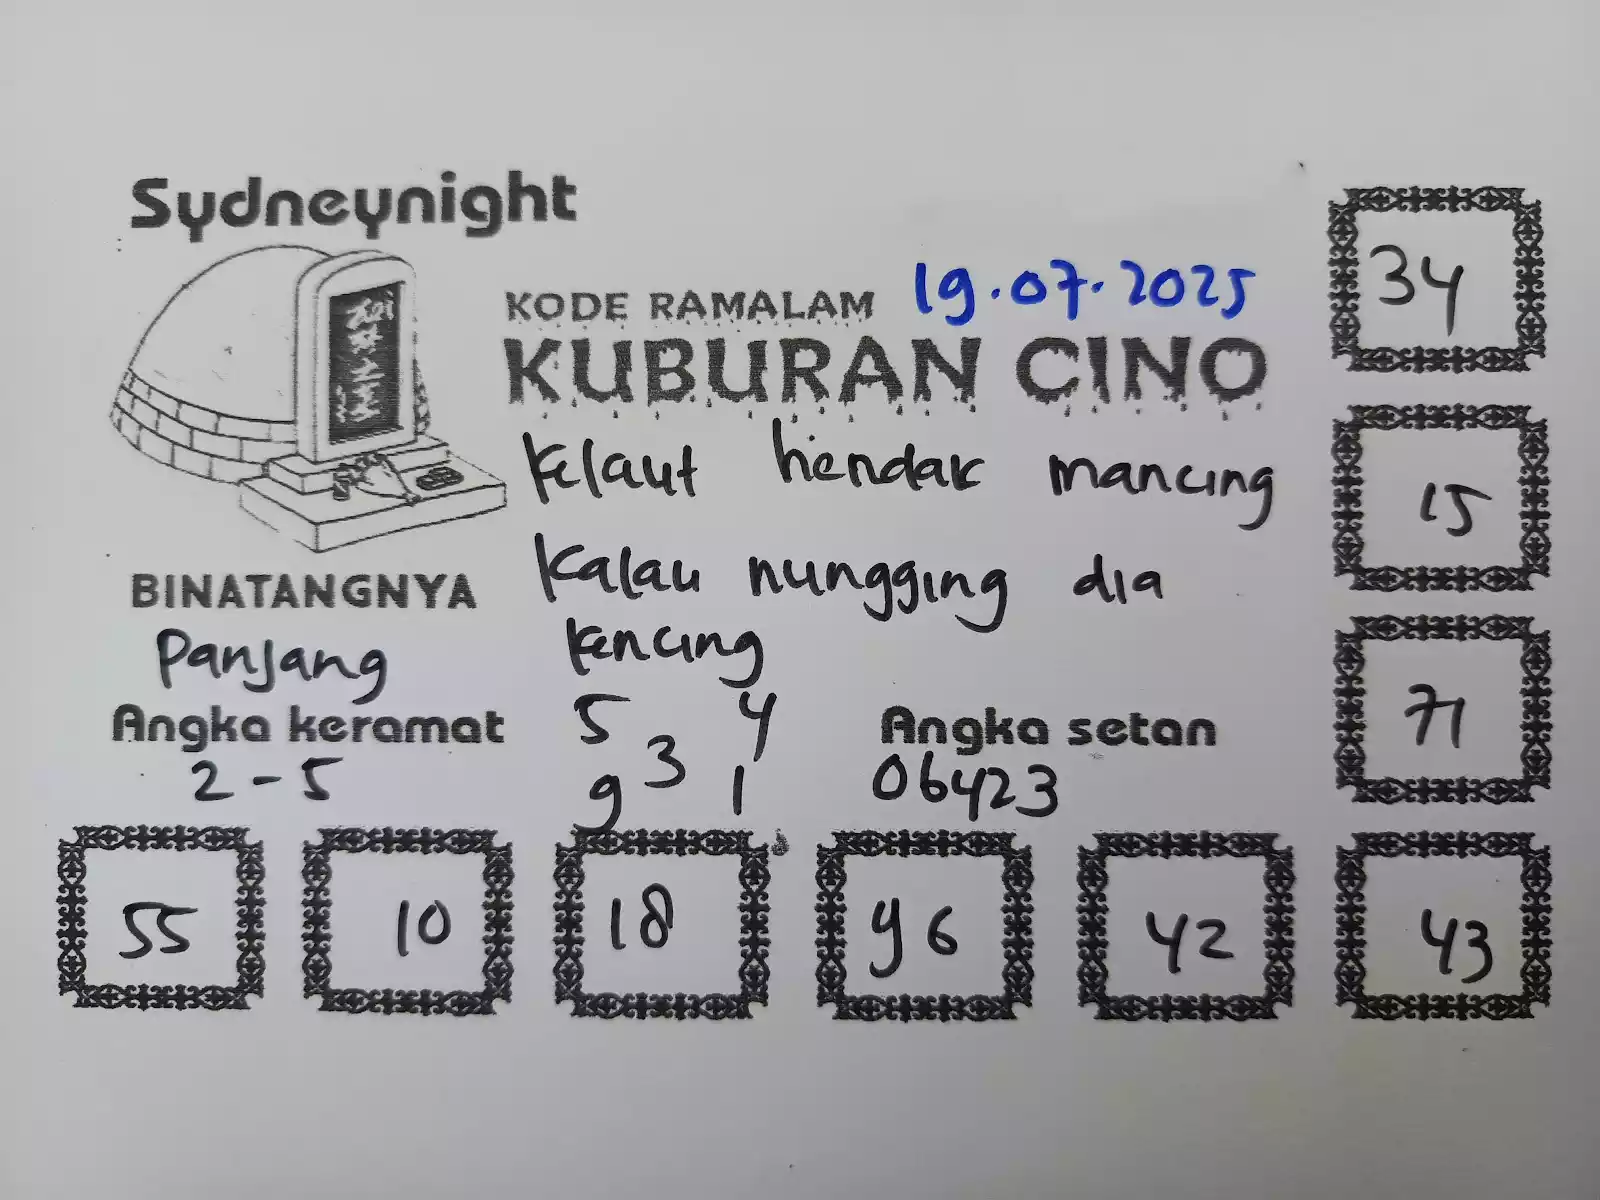 Sydneynight
KODE RAMALAM 19.07.2025
KUBURAN CINO
Kelaut hendak mancing
Kalau nungging dia
kencing
BINATANGNYA
Panjang
Angka keramat
2-5
5 4
3
9 1
Angka setan
06423
34
15
71
55 10 18 96 42 43